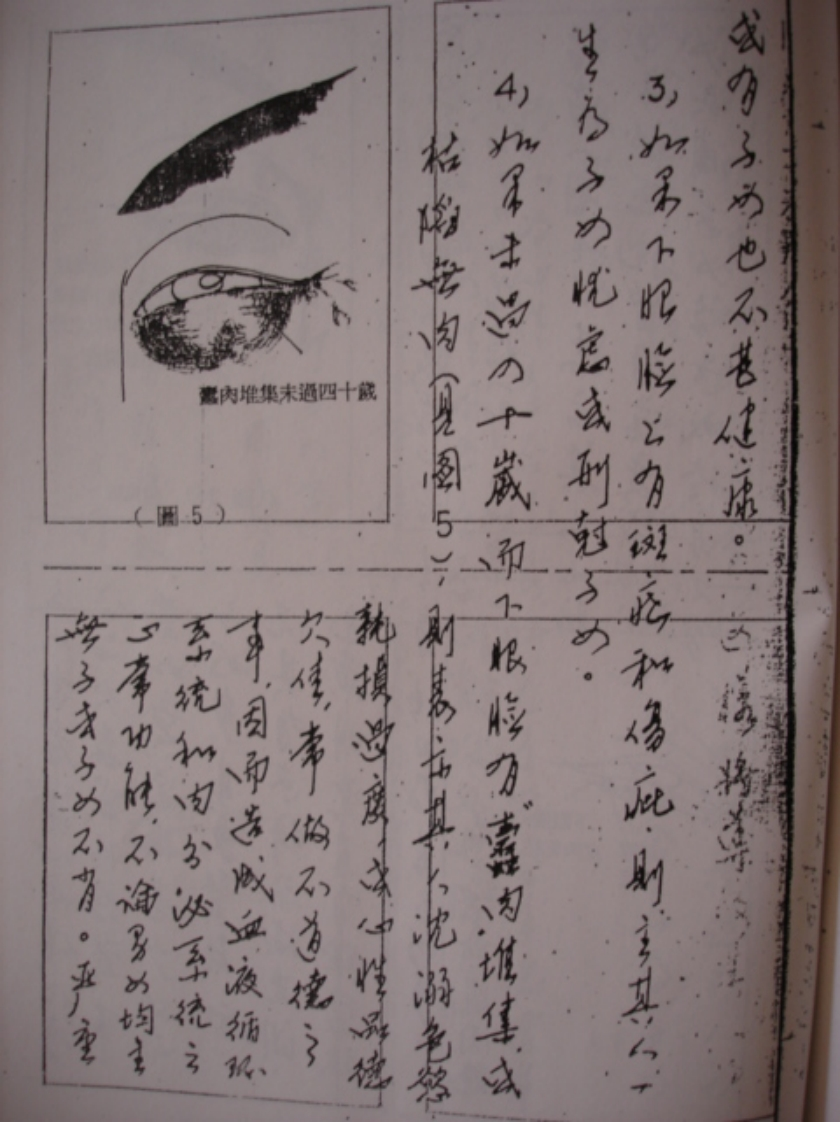 或有子女也不甚健康。
3) 如果下眼瞼上有斑痣和傷疵、則主其人一
生為子女忧忘或刑尅子女。
4) 如果未過四十歲、而下眼瞼有蠹肉堆集、或
枯陷無肉(見圖5)、則表示其人沈溺色慾
執損過度、或心性品德
欠佳、常做不道德之
事、因而造成血液循环
系统和内分泌系统之
正常功能、不論男女均主
無子或子女不肖。严重
蠹肉堆集未過四十歲
(圖5)